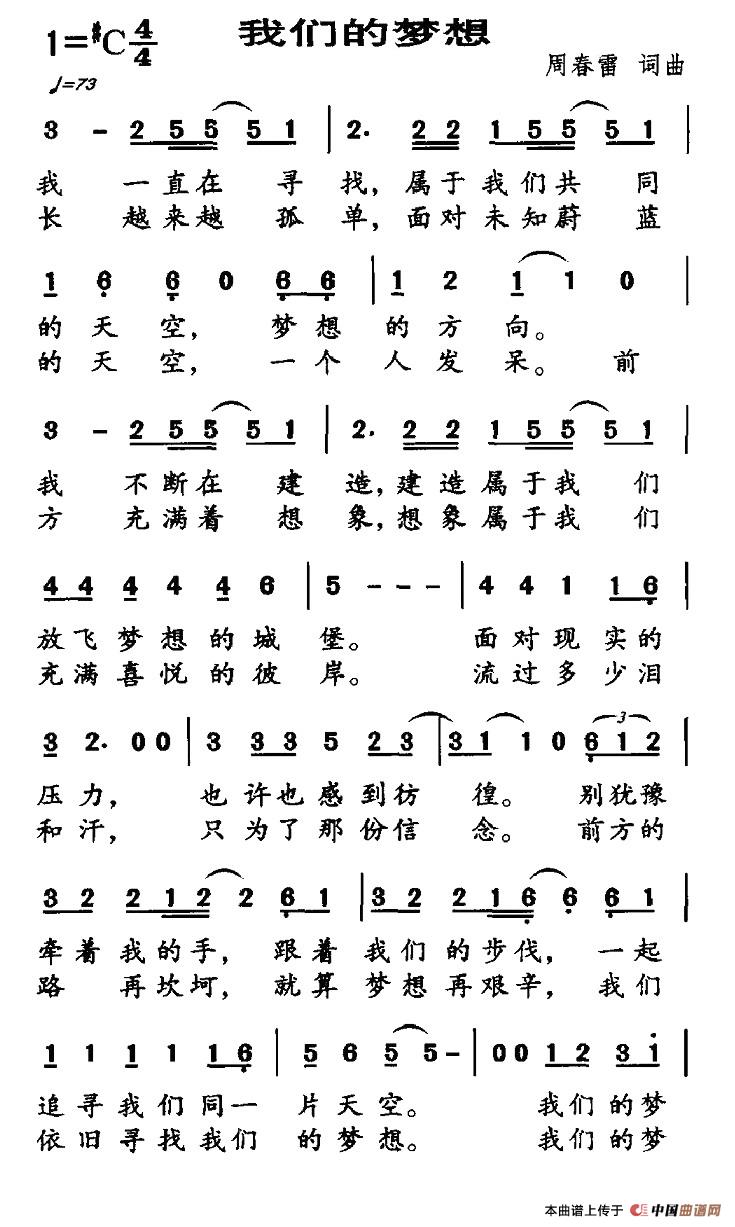 我们的梦想
1=#C 4/4
周春雷 词曲
♩=73
3 - 2 5 5 5 1 | 2. 2 2 1 5 5 5 1 |
我 一直在 寻 找，属于我们共 同
长 越来越 孤 单，面对未知蔚 蓝
1 6 6 0 6 6 | 1 2 1 1 0 |
的天空， 梦想 的方向。
的天空， 一个 人发呆。前
3 - 2 5 5 5 1 | 2. 2 2 1 5 5 5 1 |
我 不断在 建 造，建造属于我 们
方 充满着 想 象，想象属于我 们
4 4 4 4 4 6 | 5 - - - | 4 4 1 1 6 |
放飞梦想的城 堡。 面对现实的
充满喜悦的彼 岸。 流过多少泪
3 2. 0 0 | 3 3 3 5 2 3 | 3 1 1 0 6 1 2 |
3
压力， 也许也感到彷 徨。 别犹豫
和汗， 只为了那份信 念。 前方的
3 2 2 1 2 2 6 1 | 3 2 2 1 6 6 6 1 |
牵着我的手， 跟着 我们的步伐， 一起
路 再坎坷， 就算 梦想再艰辛， 我们
1 1 1 1 1 6 | 5 6 5 5 - | 0 0 1 2 3 1 |
追寻我们同一 片天空。 我们的梦
依旧寻找我们 的梦想。 我们的梦
本曲谱上传于 中国曲谱网